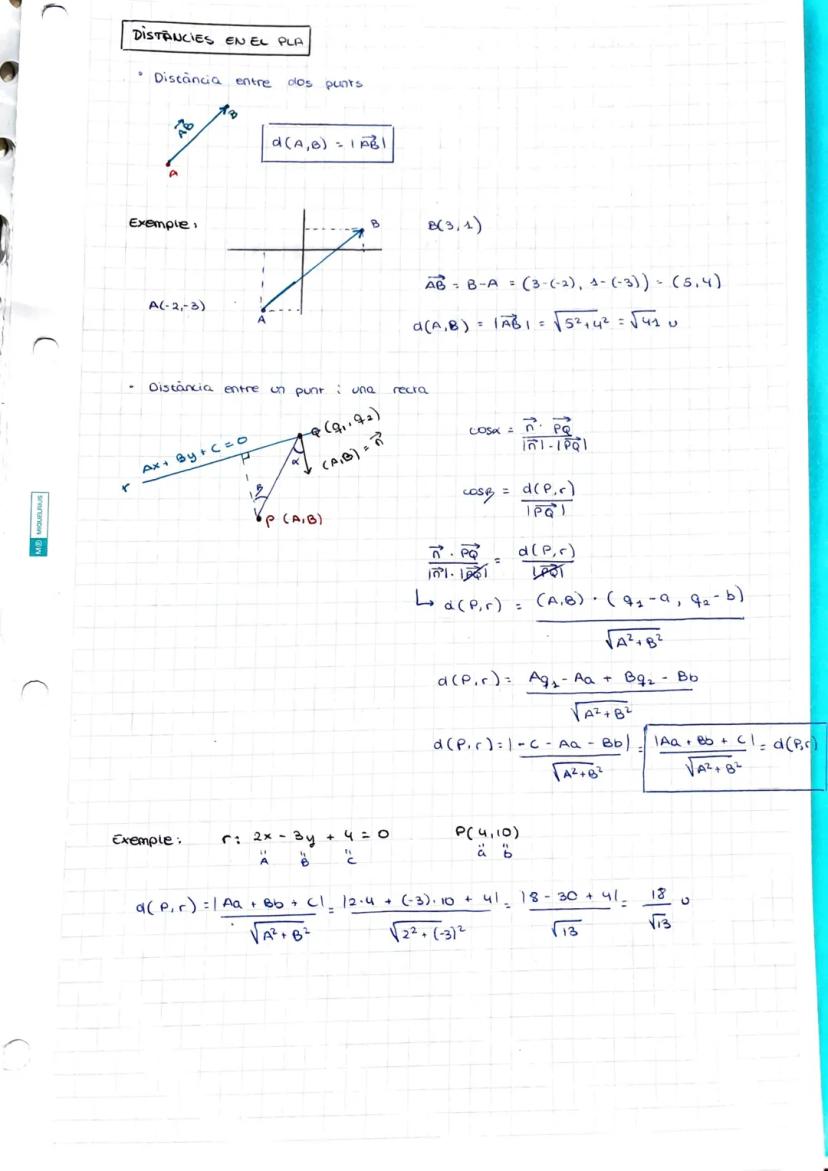 DISTÀNCIES EN EL PLA
• Distància entre dos punts
AB B
A
d(A,B) = |AB|
Exemple:
B
B(3,1)
AB = B-A = (3-(-2), 1-(-3)) = (5,4)
A(-2,-3)
A
d(A,B) = |AB| = √5²+4² = √41 u
- Distància entre un punt i una recta
Q (q₁, q₂)
Ax + By + C = 0
r
α
(A,B) = n
β
P (A,B)
cosα = n · PQ / |n| · |PQ|
cosβ = d(P,r) / |PQ|
n · PQ / |n| · |PQ| = d(P,r) / |PQ|
↳ d(P,r) = (A,B) · (q₁-a, q₂-b) / √A²+B²
d(P,r) = Aq₁ - Aa + Bq₂ - Bb / √A²+B²
d(P,r) = |-C - Aa - Bb| / √A²+B² = |Aa + Bb + C| / √A²+B² = d(P,r)
Exemple: r: 2x - 3y + 4 = 0 P(4,10)
A B C a b
d(P,r) = |Aa + Bb + C| / √A²+B² = |2·4 + (-3)·10 + 4| / √2²+(-3)² = |8 - 30 + 4| / √13 = 18 / √13 u
MIQUELRIUS